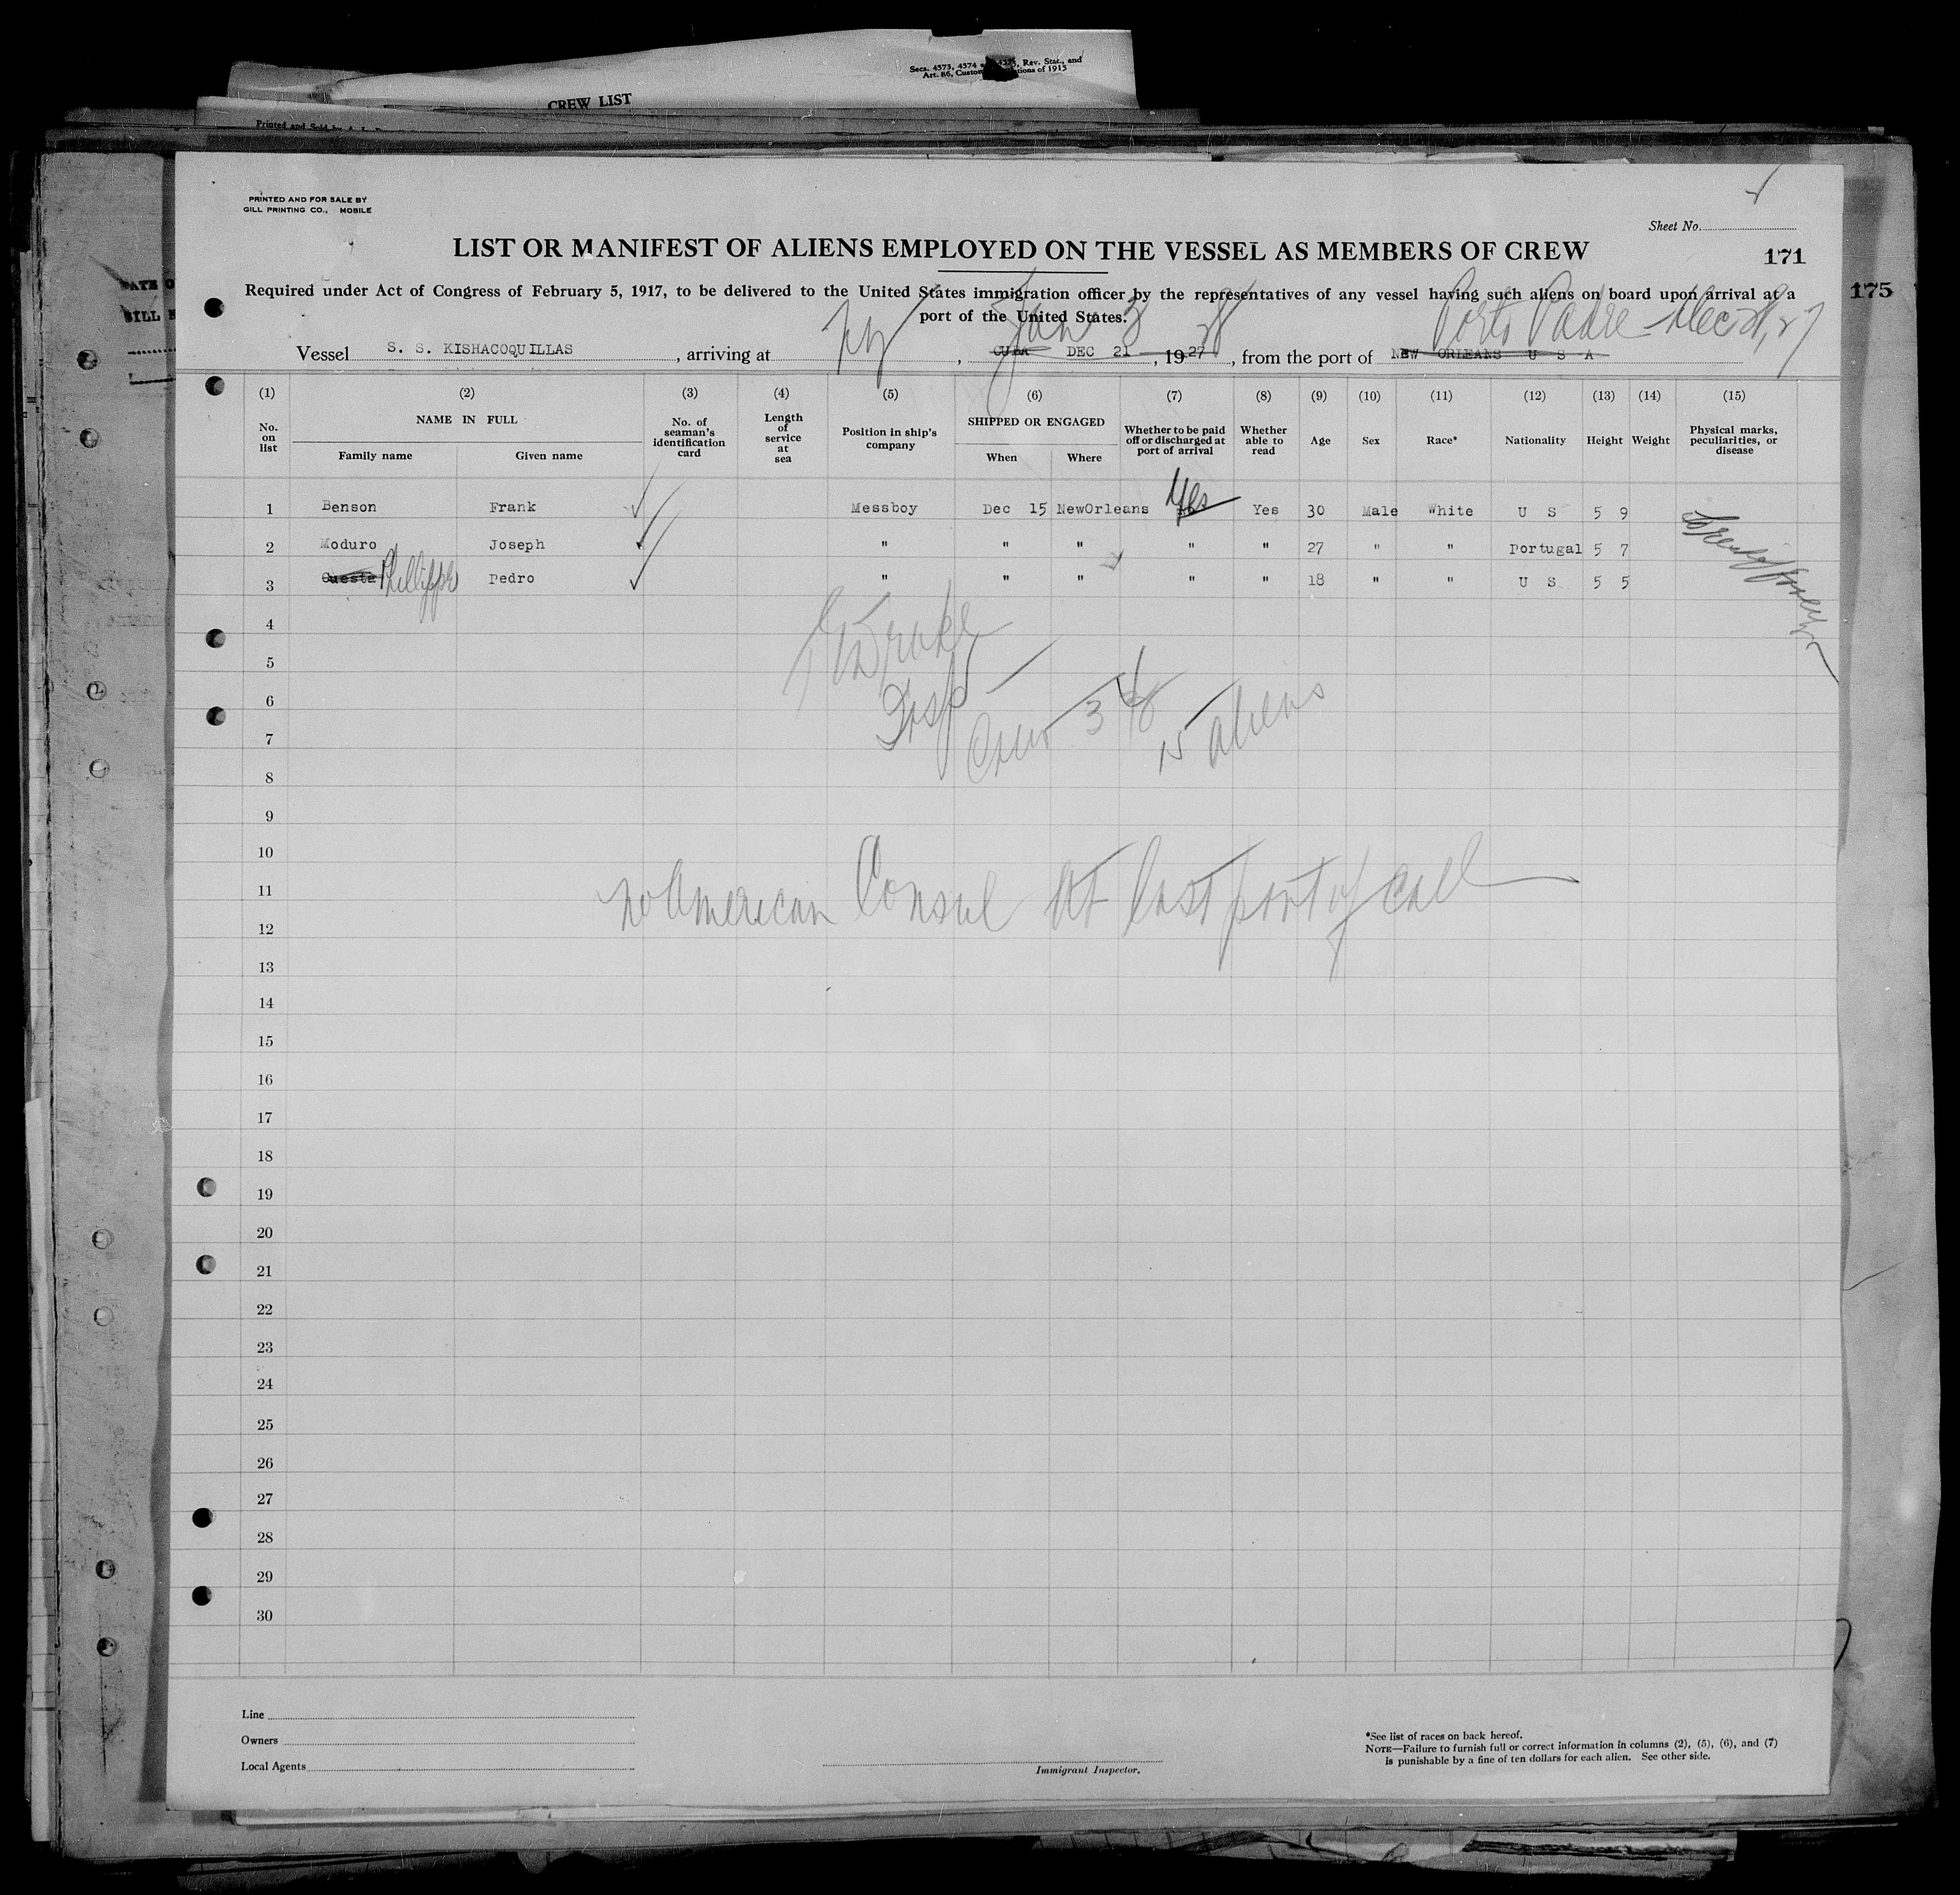 Secs. 4573, 4574 4575, Rev. Stat., and
Art. 86, Custom tions of 1915
CREW LIST
Printed and Sold by
PRINTED AND FOR SALE BY
GILL PRINTING CO., MOBILE
Sheet No.
LIST OR MANIFEST OF ALIENS EMPLOYED ON THE VESSEL AS MEMBERS OF CREW
171
175
Required under Act of Congress of February 5, 1917, to be delivered to the United States immigration officer by the representatives of any vessel having such aliens on board upon arrival at a
port of the United States.
Jan 3 28 Porto Padre - Dec 28, 27
Vessel S. S. KISHACOQUILLAS, arriving at NY, CUBA DEC 21, 1927, from the port of NEW ORLEANS U S A
(1) (2) (3) (4) (5) (6) (7) (8) (9) (10) (11) (12) (13) (14) (15)
No. on list NAME IN FULL Family name Given name No. of seaman's identification card Length of service at sea Position in ship's company SHIPPED OR ENGAGED When Where Whether to be paid off or discharged at port of arrival Whether able to read Age Sex Race* Nationality Height Weight Physical marks, peculiarities, or disease
1 Benson Frank Messboy Dec 15 NewOrleans Yes Yes 30 Male White U S 5 9
2 Moduro Joseph " " " " " 27 " " Portugal 5 7
3 Cuesta Phillippe Pedro " " " " " 18 " " U S 5 5
4
Drake
5
Insp
6
Crew 38
7
15 aliens
8
9
10
11
no American Consul at last port of call
12
13
14
15
16
17
18
19
20
21
22
23
24
25
26
27
28
29
30
Line
Owners
Local Agents
Immigrant Inspector.
*See list of races on back hereof.
NOTE—Failure to furnish full or correct information in columns (2), (5), (6), and (7)
is punishable by a fine of ten dollars for each alien. See other side.